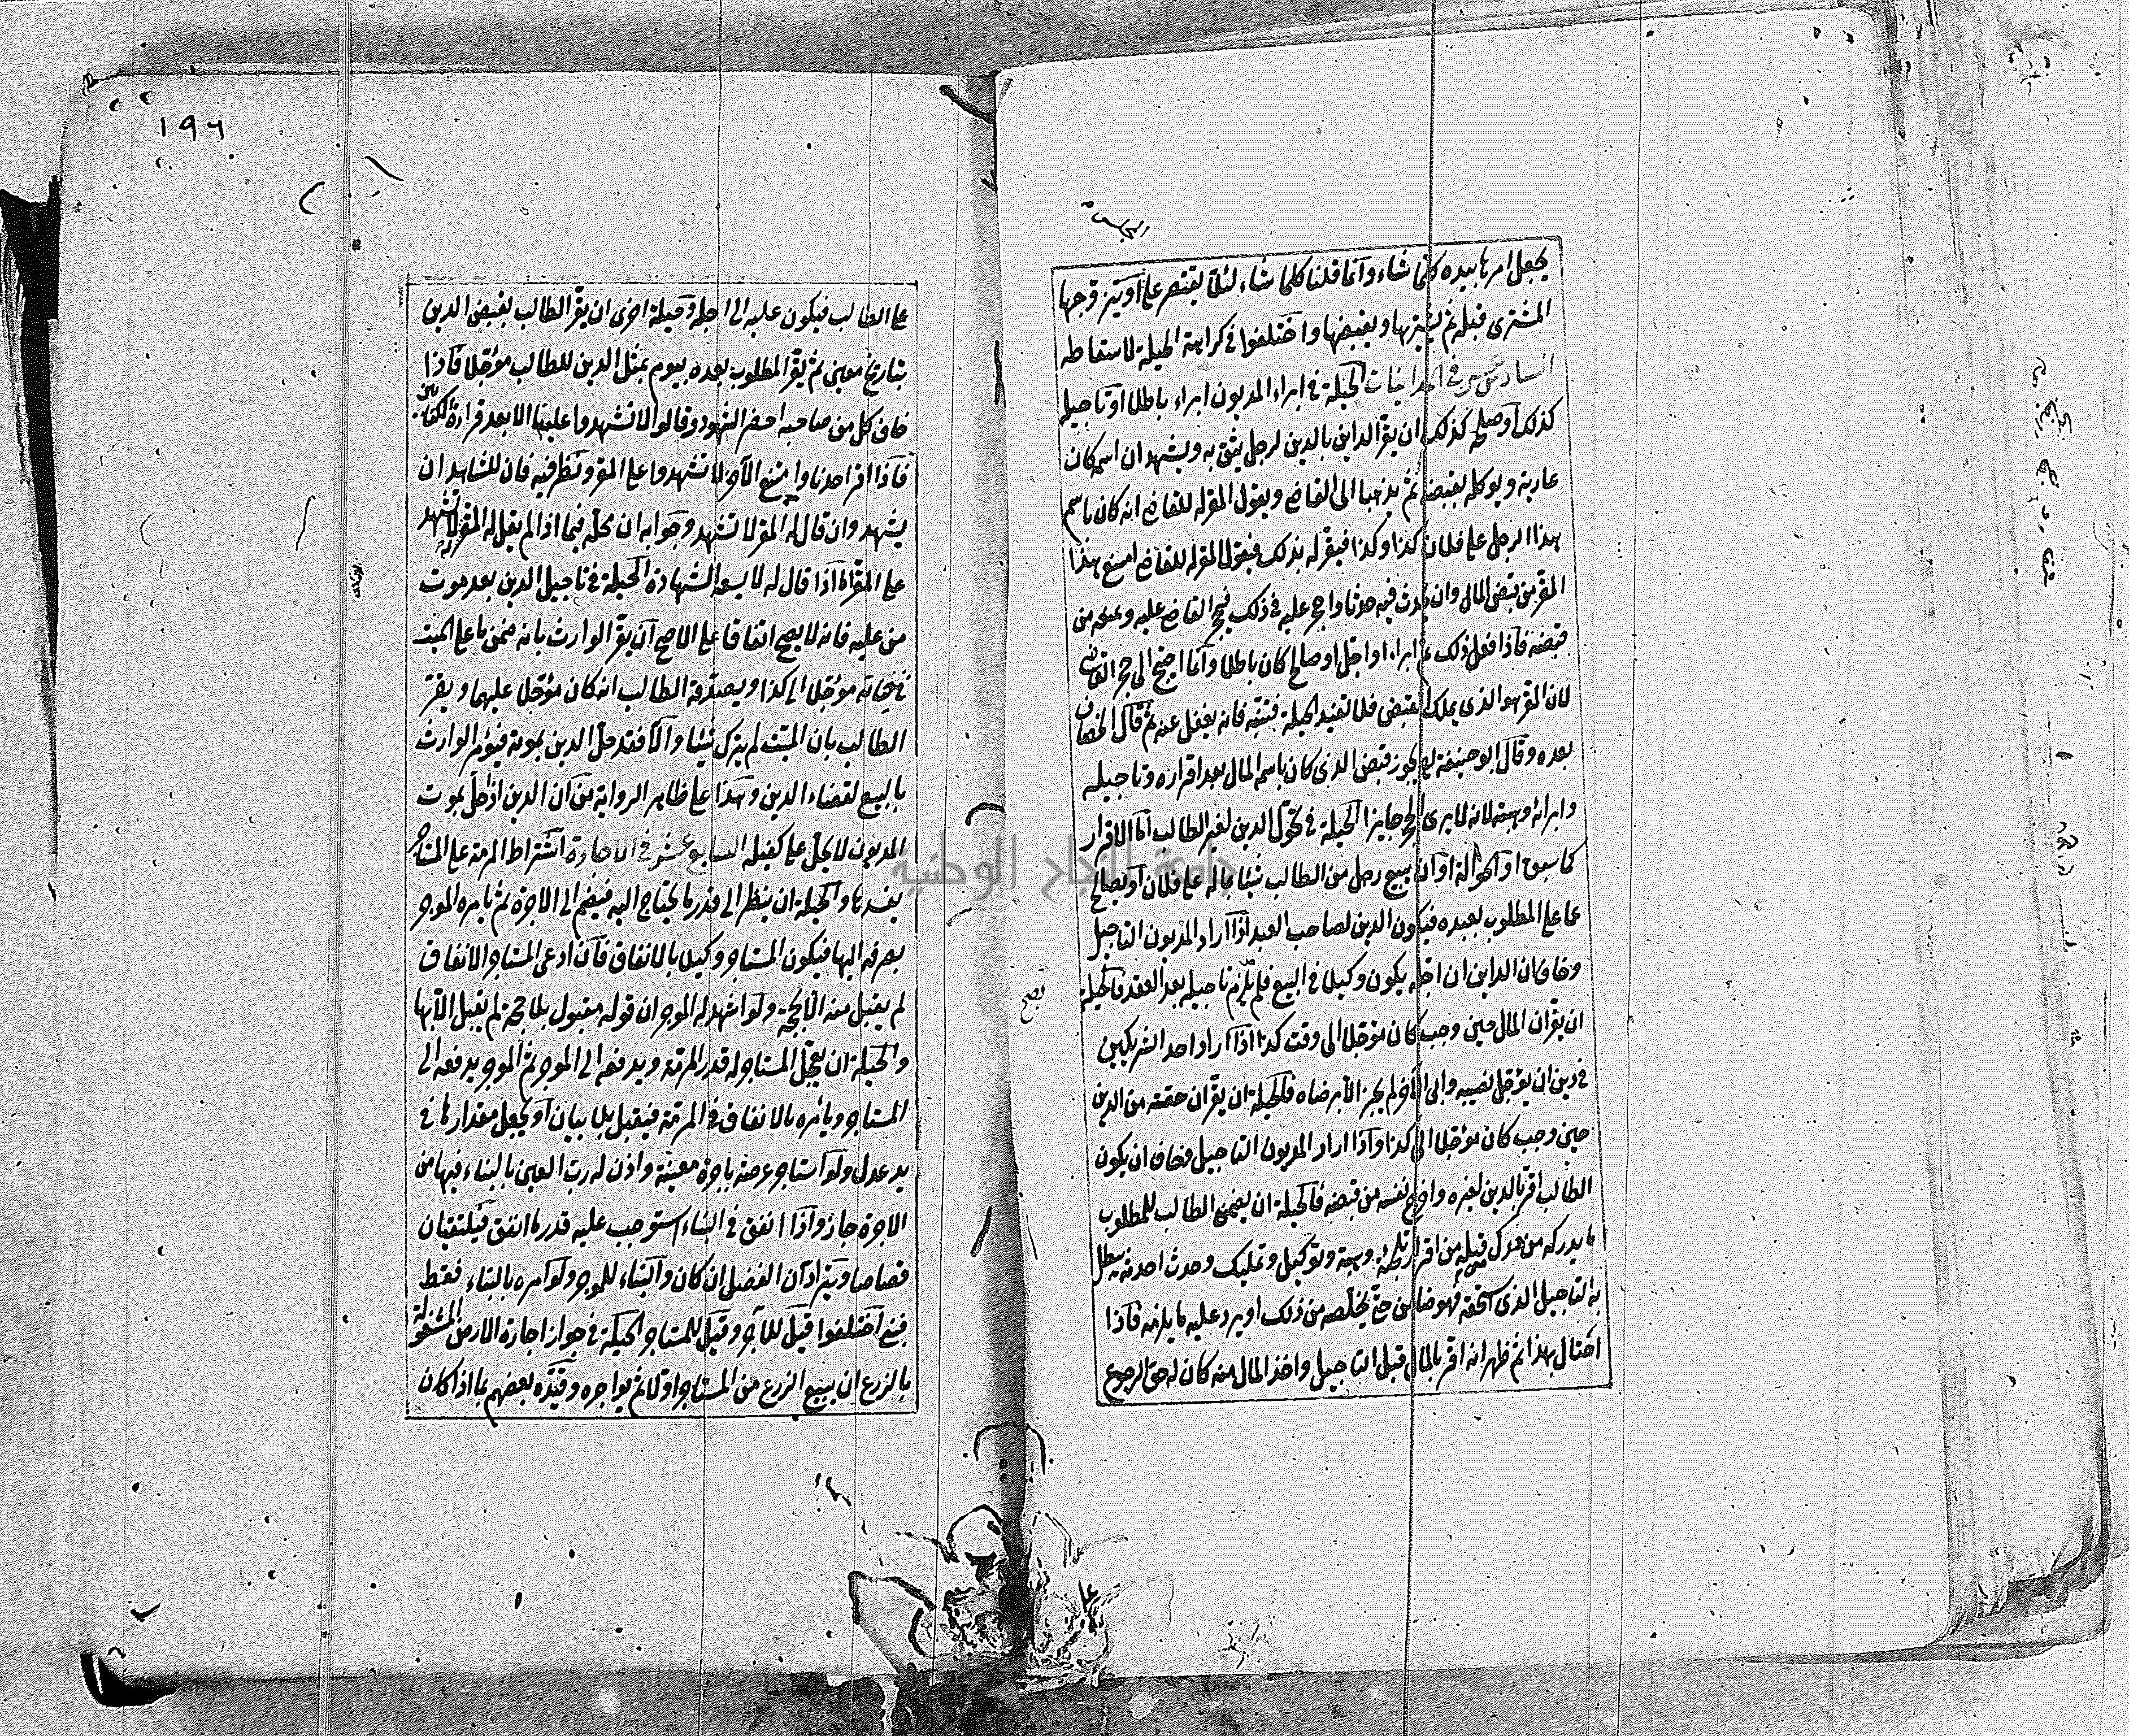 يجعل امرها بيده كلما شاء وانما قلنا كلما شاء لئلا يقتصر على او يتزوجها
المشترى قبله ثم يشتريها ويقبضها واختلفوا في كراهة الحيلة لاسقاطه
السادس عشر في المداينات الحيلة في ابراء المديون ابراء باطلا او تاجيله
كذلك او صلحه كذلك ان يقر الداين بالدين لرجل يثق به ويشهد ان اسمه كان
عارية ويوكله بقبضه ثم يذهبا الى القاضي ويقول المقر له للقاضي انه كان باسم
هذا الرجل على فلان كذا وكذا فيقر له بذلك فيقول المقر له للقاضي امنع هذا
المقر من قبض المال وان يحدث فيه حدثا واحجر عليه في ذلك فيحجر القاضي عليه ويمنعه من
قبضه فاذا فعل ذلك ثم ابراء او اجل او صالح كان باطلا وانما احتيج الى حجر القاضي
لان المقر هو الذى يملك القبض فلا تفيد الحيلة فتنبه فانه يغفل عنه ثم قال الخصاف
بعده وقال ابو حنيفة يجوز قبض الذى كان باسمه المال بعد اقراره وتاجيله
وابرائه وهبته لانه لا يرى الحجر جايزا الحيلة في تحول الدين لغير الطالب اما الاقرار
كما سبق او الحوالة او ان يبيع رجل من الطالب شيئا بماله على فلان او يصالح
عما على المطلوب بعبده فيكون الدين لصاحب العبد اذا اراد المديون التاجيل
وخاف ان الداين ان اجله يكون وكيلا في البيع فلم يلزم تاجيله بعد العقد فالحيلة
ان يقر ان المال حين وجب كان مؤجلا الى وقت كذا اذا اراد احد الشريكين
في دين ان يؤجل نصيبه وابى الاخر لم يجز الا برضاه فالحيلة ان يقر ان حصته من الدين
حين وجب كان مؤجلا الى كذا واذا اراد المديون التاجيل وخاف ان يكون
الطالب اقر بالدين لغيره واخرج نفسه من قبضه فالحيلة ان يضمن الطالب للمطلوب
ما يدركه من درك قبله من اقرار تلجئة وهبة وتوكيل وتمليك وحدث احدثه يبطل
به التاجيل الذى استحقه فهو ضامن حتى يخلصه من ذلك او يرد عليه ما يلزمه فاذا
احتال بهذا ثم ظهر انه اقر بالمال قبل التاجيل واخذ المال منه كان له حق الرجوع
على
١٩٦
على الطالب فيكون عليه الى اجله وحيلة اخرى ان يقر الطالب بقبض الدين
بتاريخ معين ثم يقر المطلوب بعده بيوم بمثل الدين للطالب مؤجلا فاذا
خاف كل من صاحبه احضر الشهود وقالوا لا تشهدوا علينا الا بعد قراءة الكتابين
فاذا اقر احدنا وامتنع الاخر لا تشهدوا على المقر ونظر فيه فان للشاهد ان
يشهد وان قال له المقر لا تشهد وجوابه ان محله فيما اذا لم يقل له المقر له لا تشهد
على المقر اما اذا قال له لا يسعه الشهادة الحيلة في تاجيل الدين بعد موت
من عليه فانه لا يصح اتفاقا على الاصح ان يقر الوارث بانه ضمن ما على الميت
في حياته مؤجلا الى كذا ويصدقه الطالب انه كان مؤجلا عليهما ويقر
الطالب بان الميت لم يترك شيئا والا فقد حل الدين بموته فيؤمر الوارث
بالبيع لقضاء الدين وهذا على ظاهر الرواية من ان الدين اذا حل بموت
المديون لا يحل على كفيله السابع عشر في الاجارة اشتراط المرمة على المستاجر
يفسدها والحيلة ان ينظر الى قدر ما يحتاج اليه فيضم الى الاجرة ثم يامره الموجر
بصرفه اليها فيكون المستاجر وكيلا بالانفاق فان ادعى المستاجر الانفاق
لم يقبل منه الا بحجة ولو اشهد له الموجر ان قوله مقبول بلا حجة لم يقبل الا بها
والحيلة ان يعجل المستاجر له قدر المرمة ويدفعه الى الموجر ثم الموجر يدفعه الى
المستاجر ويامره بالانفاق في المرمة فيقبل بلا بيان او يجعل مقدارها في
يد عدل ولو استاجر عرصة باجرة معينة واذن له رب العين بالبناء فيها من
الاجرة جاز واذا انفق في البناء استوجب عليه قدر ما انفق فيلتقيان
قصاصا ويترادان الفضل ان كان والبناء للموجر ولو امره بالبناء فقط
فبنى اختلفوا قيل للآجر وقيل للمستاجر الحيلة في جواز اجارة الارض المشغولة
بالزرع ان يبيع الزرع من المستاجر اولا ثم يواجره وقيده بعضهم بما اذا كان
جامعة النجاح الوطنية